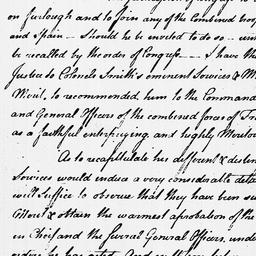 on furlough and to join any of the combined
and Spain — Should he be invited to do so —
be recalled by the order of Congress — I have the
Justice to Colonel Smith's eminent Services & M
Merit, to recommended him to the Command
and General Officers of the combined forces of Fra
as a faithful enterprizing, and highly
As to recapitulate his different &
Services would induce a very considerable deta
will suffice to observe that they have been su
& obtain the warmest aprobation of the
in Chief and the several General Officers, unde